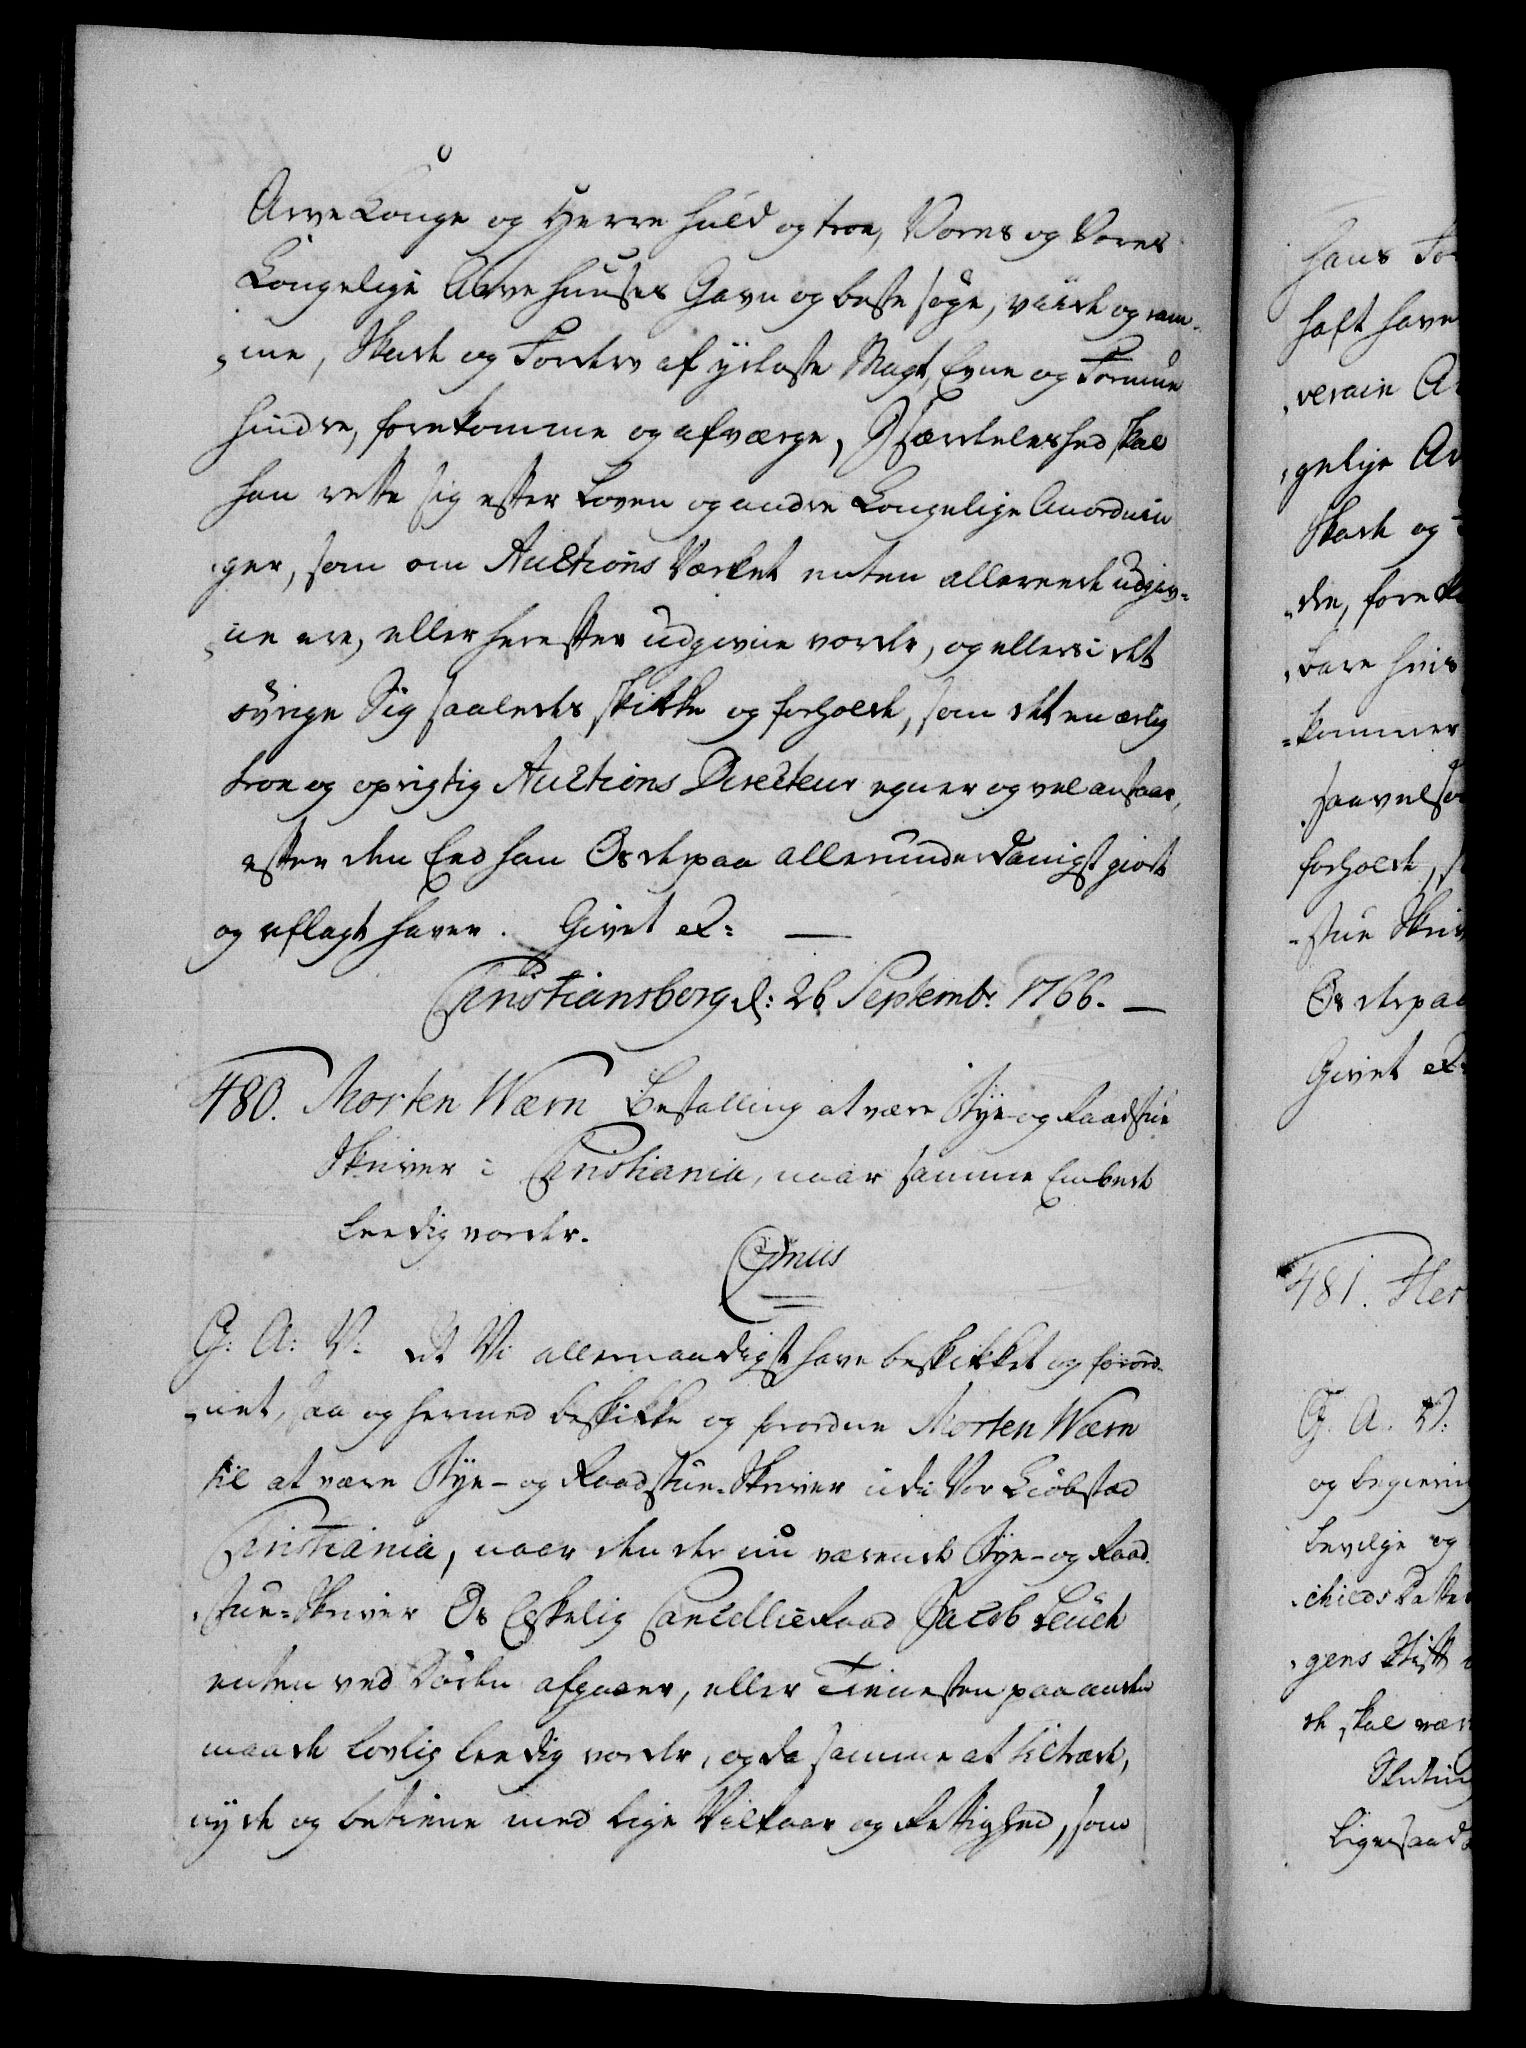 Arve Konge og Herre huld og troe, Vores og Vores
Kongelige Arve Huuses Gavn og beste søge, viide og ram-
-me, Skade og Forderv af yderste Magt, Evne og Formue
hindre, forekomme og afværge, I særdeleshed skal
han rette sig efter Loven og andre Kongelige Anordnin
-ger, som om Auctions Værket enten allereede udgiv-
-ne ere, eller herefter udgivne vorde, og ellers i det
øvrige Sig saaledes skikke og forholde, som det en ærlig
troe og oprigtig Auctions Directeur egner og vel anstaar,
efter den Eed han Os derpaa allerunderdanigst giort
og aflagt haver. Givet etc: —
Christiansborg d: 26 Septembr: 1766. —
480. Morten Wærn Bestalling at være Bye- og Raadstue
Skriver i Christiania, naar samme Embede
leedig vorder.
G: A: V: at Vi allernaadigst have beskikket og forord-
-net, saa og hermed beskikke og forordne Morten Wærn
til at være Bye- og Raadstue-Skriver udi Vor Kiøbstad
Christiania, naar den der nu værende Bye- og Raad-
-stue-Skriver Os Elskelig Cancellie Raad Jacob Leuch
enten ved Døden afgaaer, eller Tienesten paa anden
maade lovlig leedig vorder, og da samme at tiltræde,
nyde og betiene med lige Vilkaar og Rettighed, som
hans For
haft have
-verain Ar
-gelige Ar
Skade og
-dre, forek
-bare hvis
-kommer
saavelso
forholde, s
-stue Skriv
Os derpaa
Givet etc:
481. Her
G. A. V:
og begiering
bevilge og
-childs Datter
-gens Stift
de skal vær
Slutning
Ligesaad